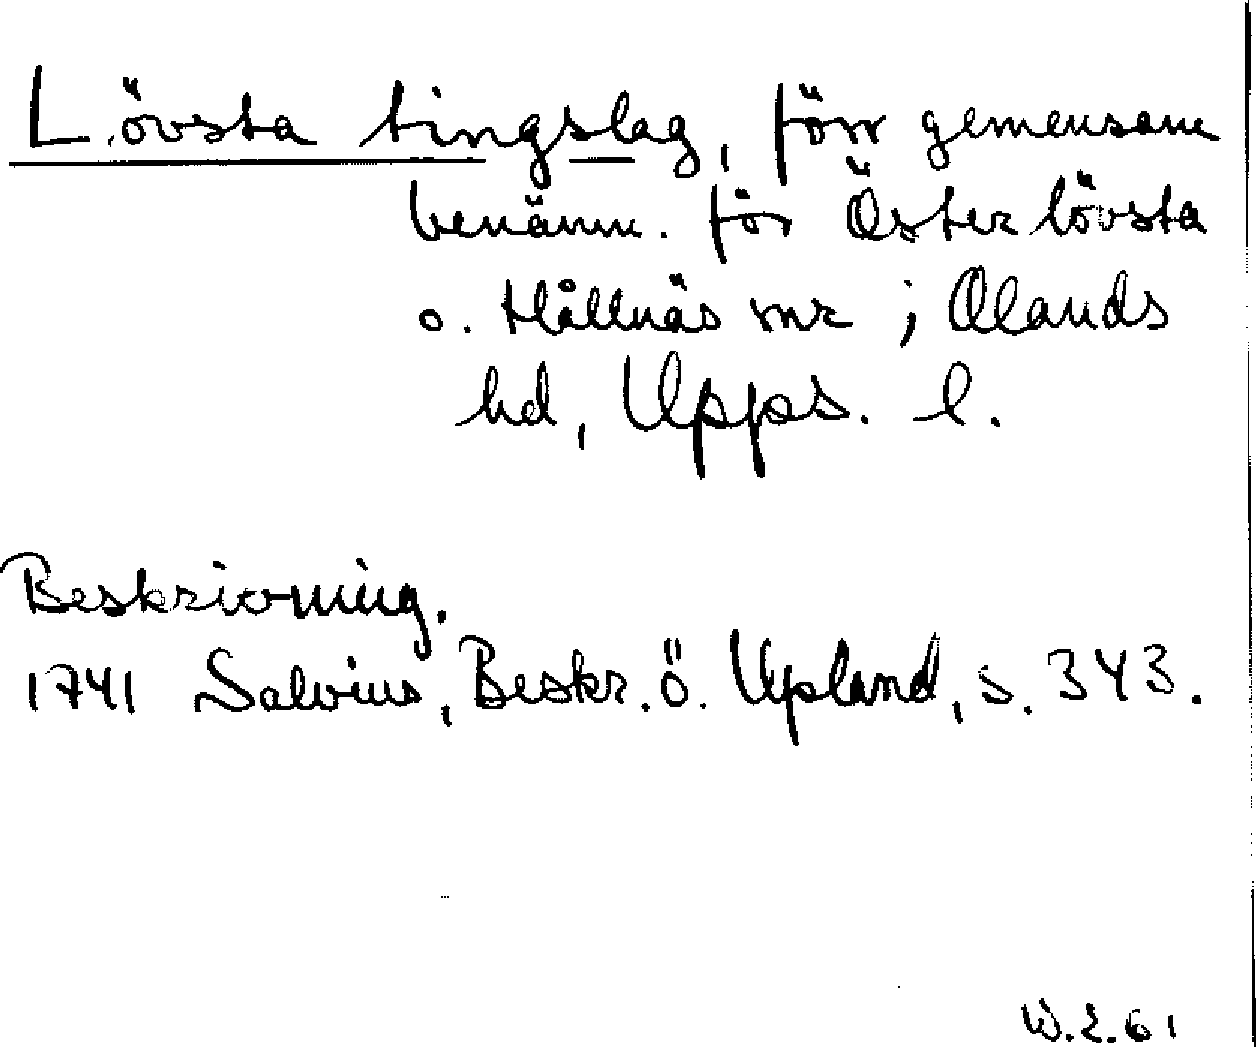 Lövsta tingslag, förr gemensam
benämn. för Österlövsta
o. Hållnäs snr ; Olands
hd, Upps. l.
Beskrivning.
1741 Salvius, Beskr. ö. Upland, s. 343.
W.2.61